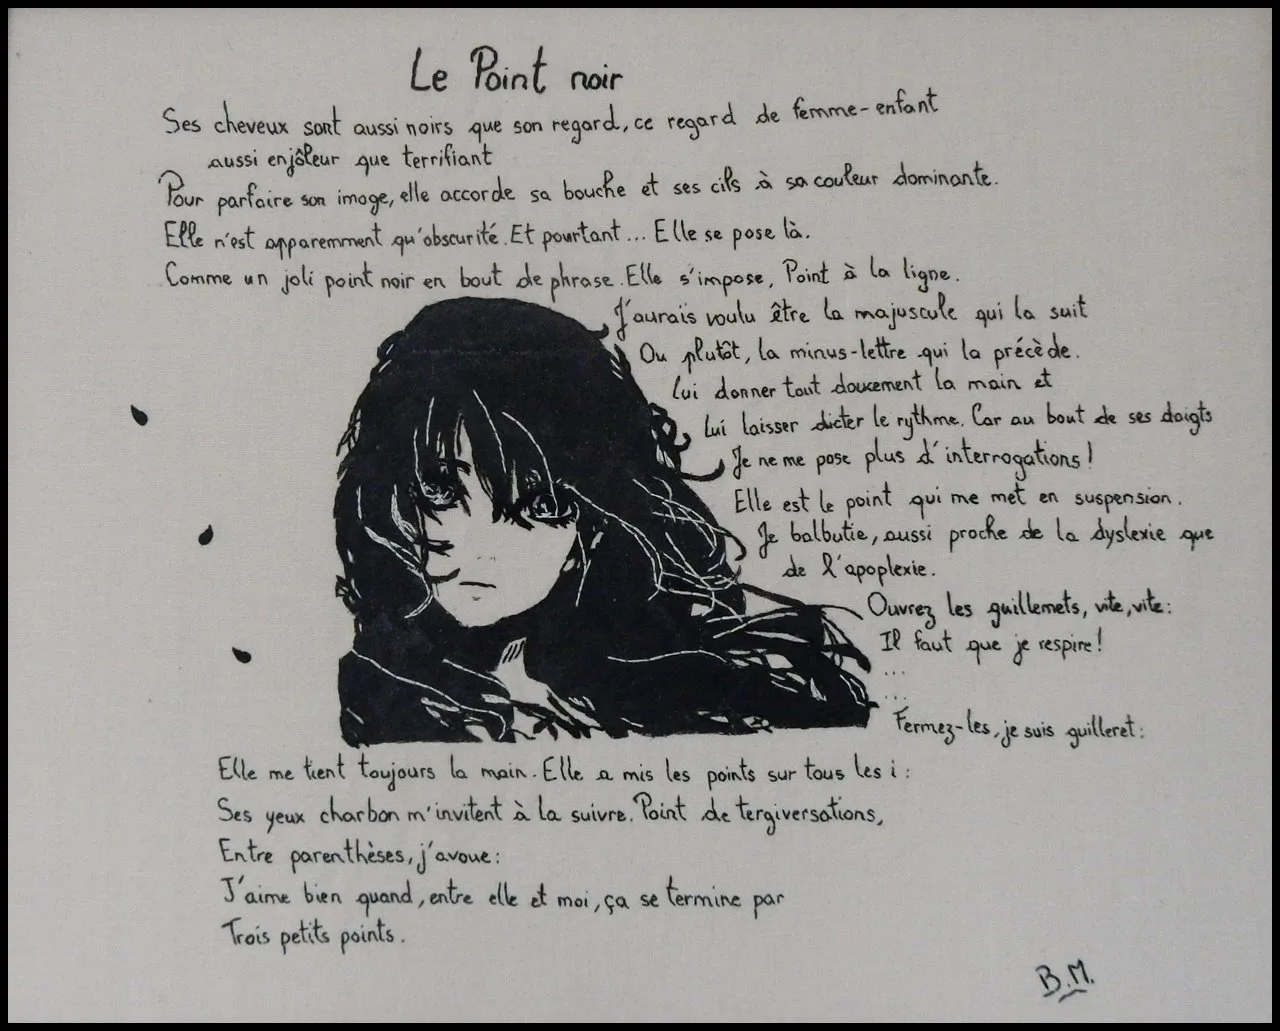 Le Point noir
Ses cheveux sont aussi noirs que son regard, ce regard de femme-enfant
aussi enjôleur que terrifiant
Pour parfaire son image, elle accorde sa bouche et ses cils à sa couleur dominante.
Elle n'est apparemment qu'obscurité. Et pourtant... Elle se pose là.
Comme un joli point noir en bout de phrase. Elle s'impose, Point à la ligne.
J'aurais voulu être la majuscule qui la suit
Ou plutôt, la minus-lettre qui la précède.
Lui donner tout doucement la main et
Lui laisser dicter le rythme. Car au bout de ses doigts
Je ne me pose plus d'interrogations!
Elle est le point qui me met en suspension.
Je balbutie, aussi proche de la dyslexie que
de l'apoplexie.
Ouvrez les guillemets, vite, vite:
Il faut que je respire!
...
...
Fermez-les, je suis guilleret:
Elle me tient toujours la main. Elle a mis les points sur tous les i:
Ses yeux charbon m'invitent à la suivre. Point de tergiversations,
Entre parenthèses, j'avoue:
J'aime bien quand, entre elle et moi, ça se termine par
Trois petits points.
B.M.